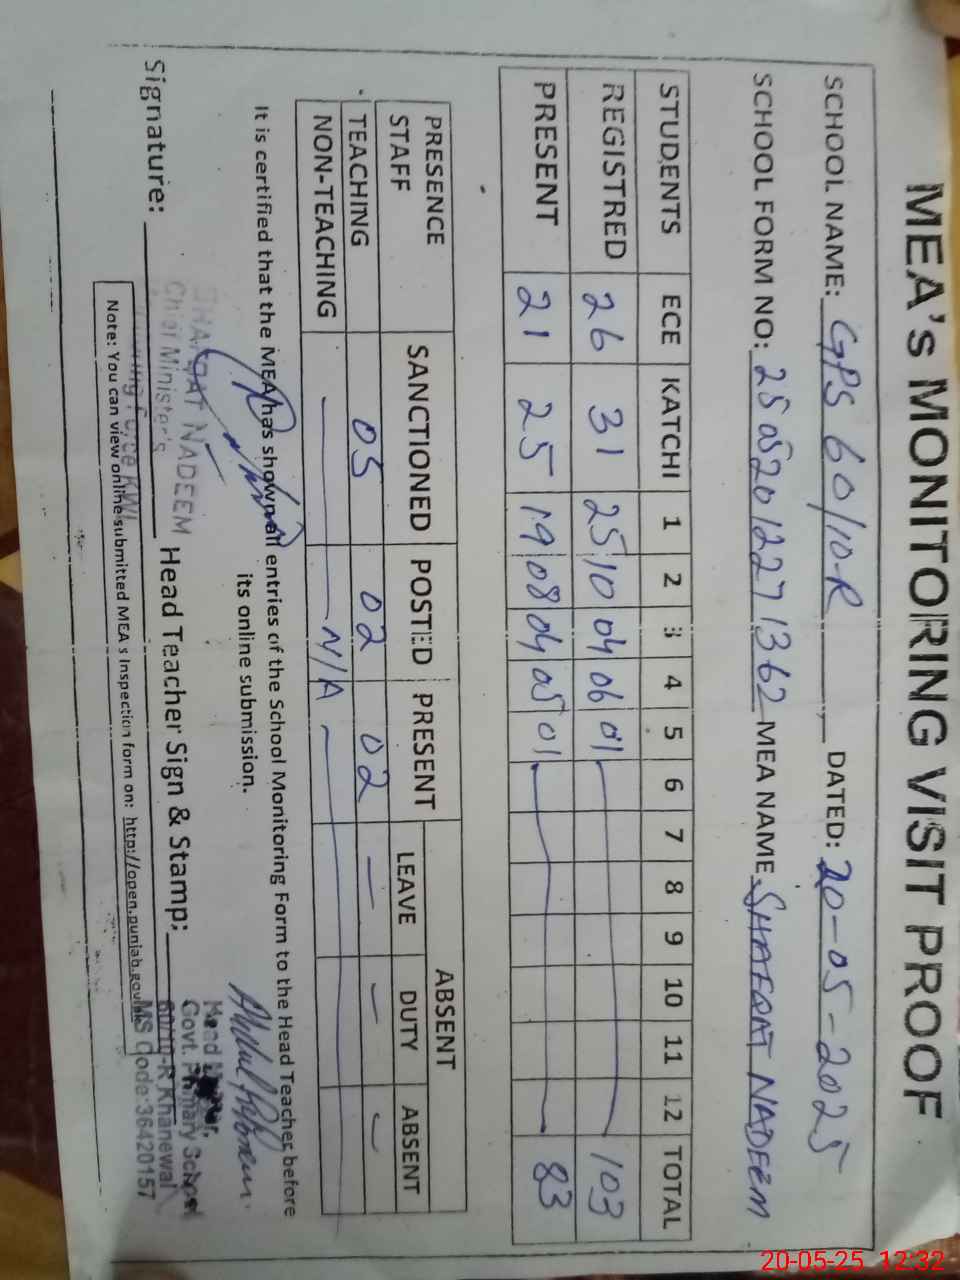 MEA's MONITORING VISIT PROOF
SCHOOL NAME: GPS 60/10-R DATED: 20-05-2025
SCHOOL FORM NO: 25052012271362 MEA NAME SHAFQAT NADEEM
STUDENTS ECE KATCHI 1 2 3 4 5 6 7 8 9 10 11 12 TOTAL
REGISTRED 26 31 25 10 04 06 01 103
PRESENT 21 25 19 08 04 05 01 83
PRESENCE STAFF SANCTIONED POSTED PRESENT ABSENT
LEAVE DUTY ABSENT
TEACHING 05 02 02 — — —
NON-TEACHING — — N/A —
It is certified that the MEA has shown all entries of the School Monitoring Form to the Head Teacher before
its online submission.
SHAFQAT NADEEM
Chief Minister's
Signature: Head Teacher Sign & Stamp:
Govt. Primary School
60/10-R Khanewal
EMIS Code:36420157
Note: You can view online submitted MEA's Inspection form on: http://open.punjab.gov.pk
20-05-25 12:32